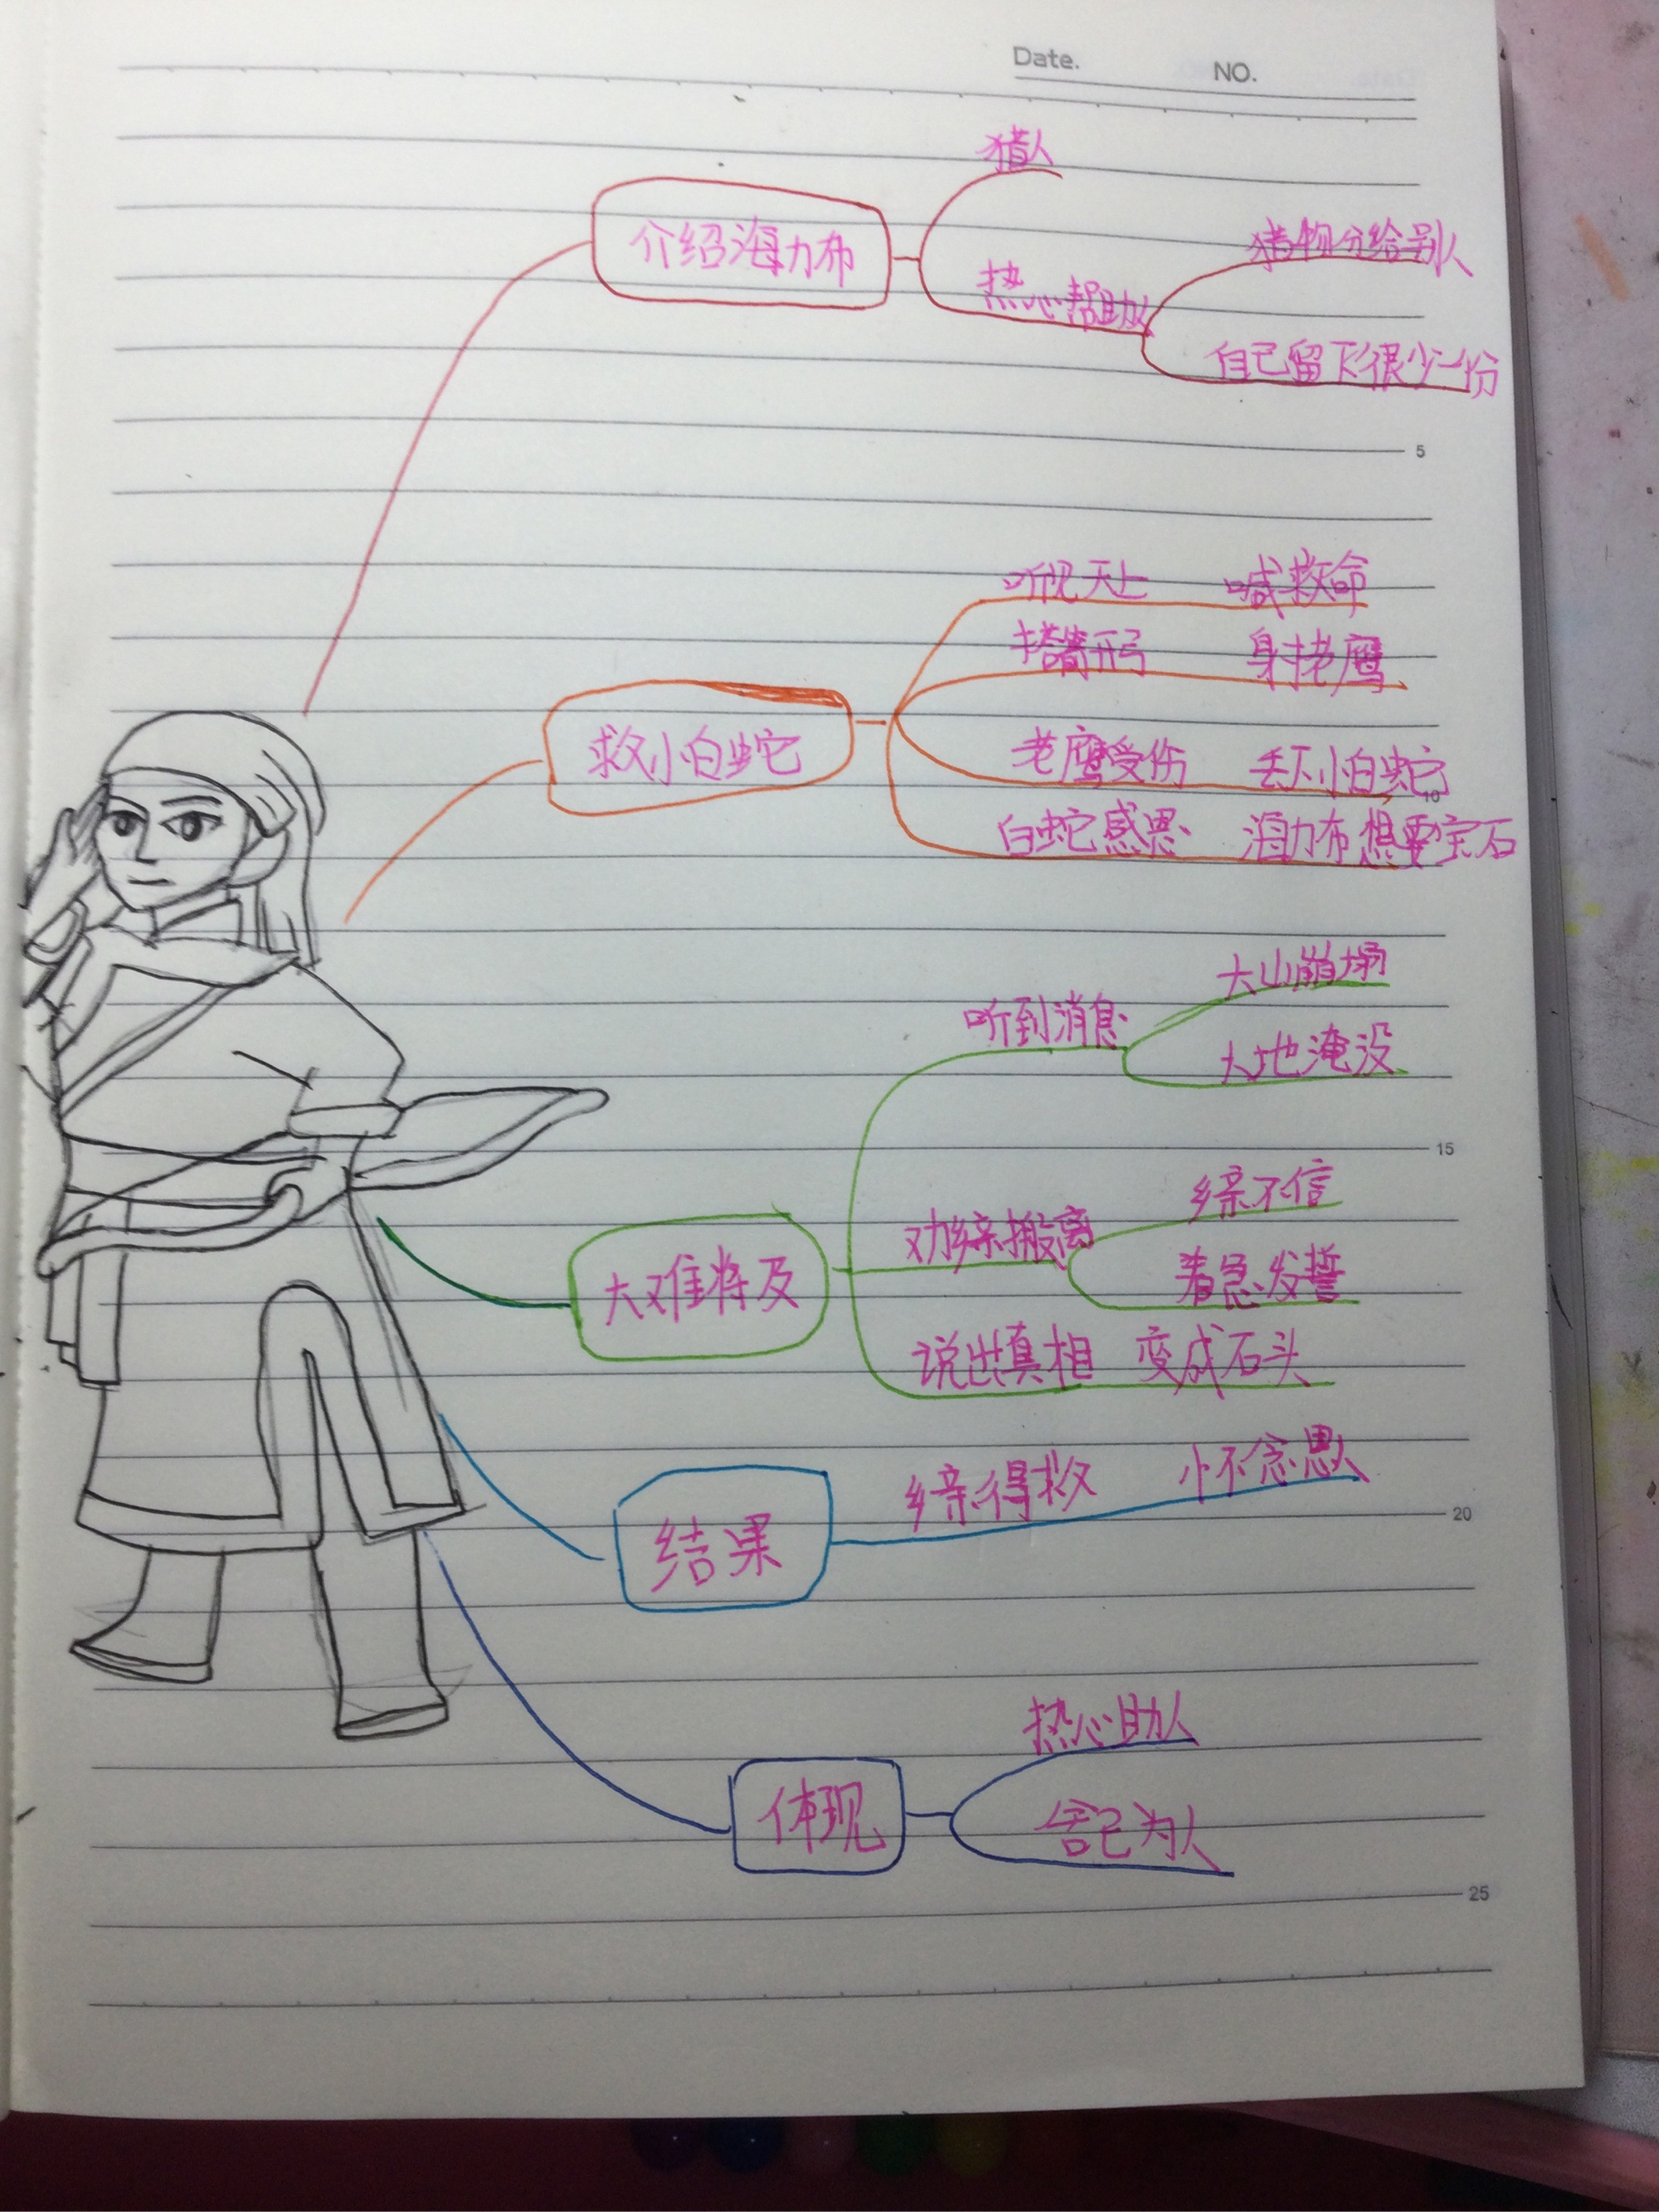 Date.
NO.
猎人
介绍海力布
猎物分给别人
热心帮助人
自己留下很少一份
5
听见天上 喊救命
搭箭开弓 射老鹰
救小白蛇
老鹰受伤 丢下小白蛇
10
白蛇感恩 海力布想要宝石
大山崩塌
听到消息
大地淹没
15
乡亲不信
劝乡亲搬离
着急发誓
大难将及
说出真相 变成石头
乡亲得救 怀念恩人
20
结果
热心助人
体现
舍己为人
25